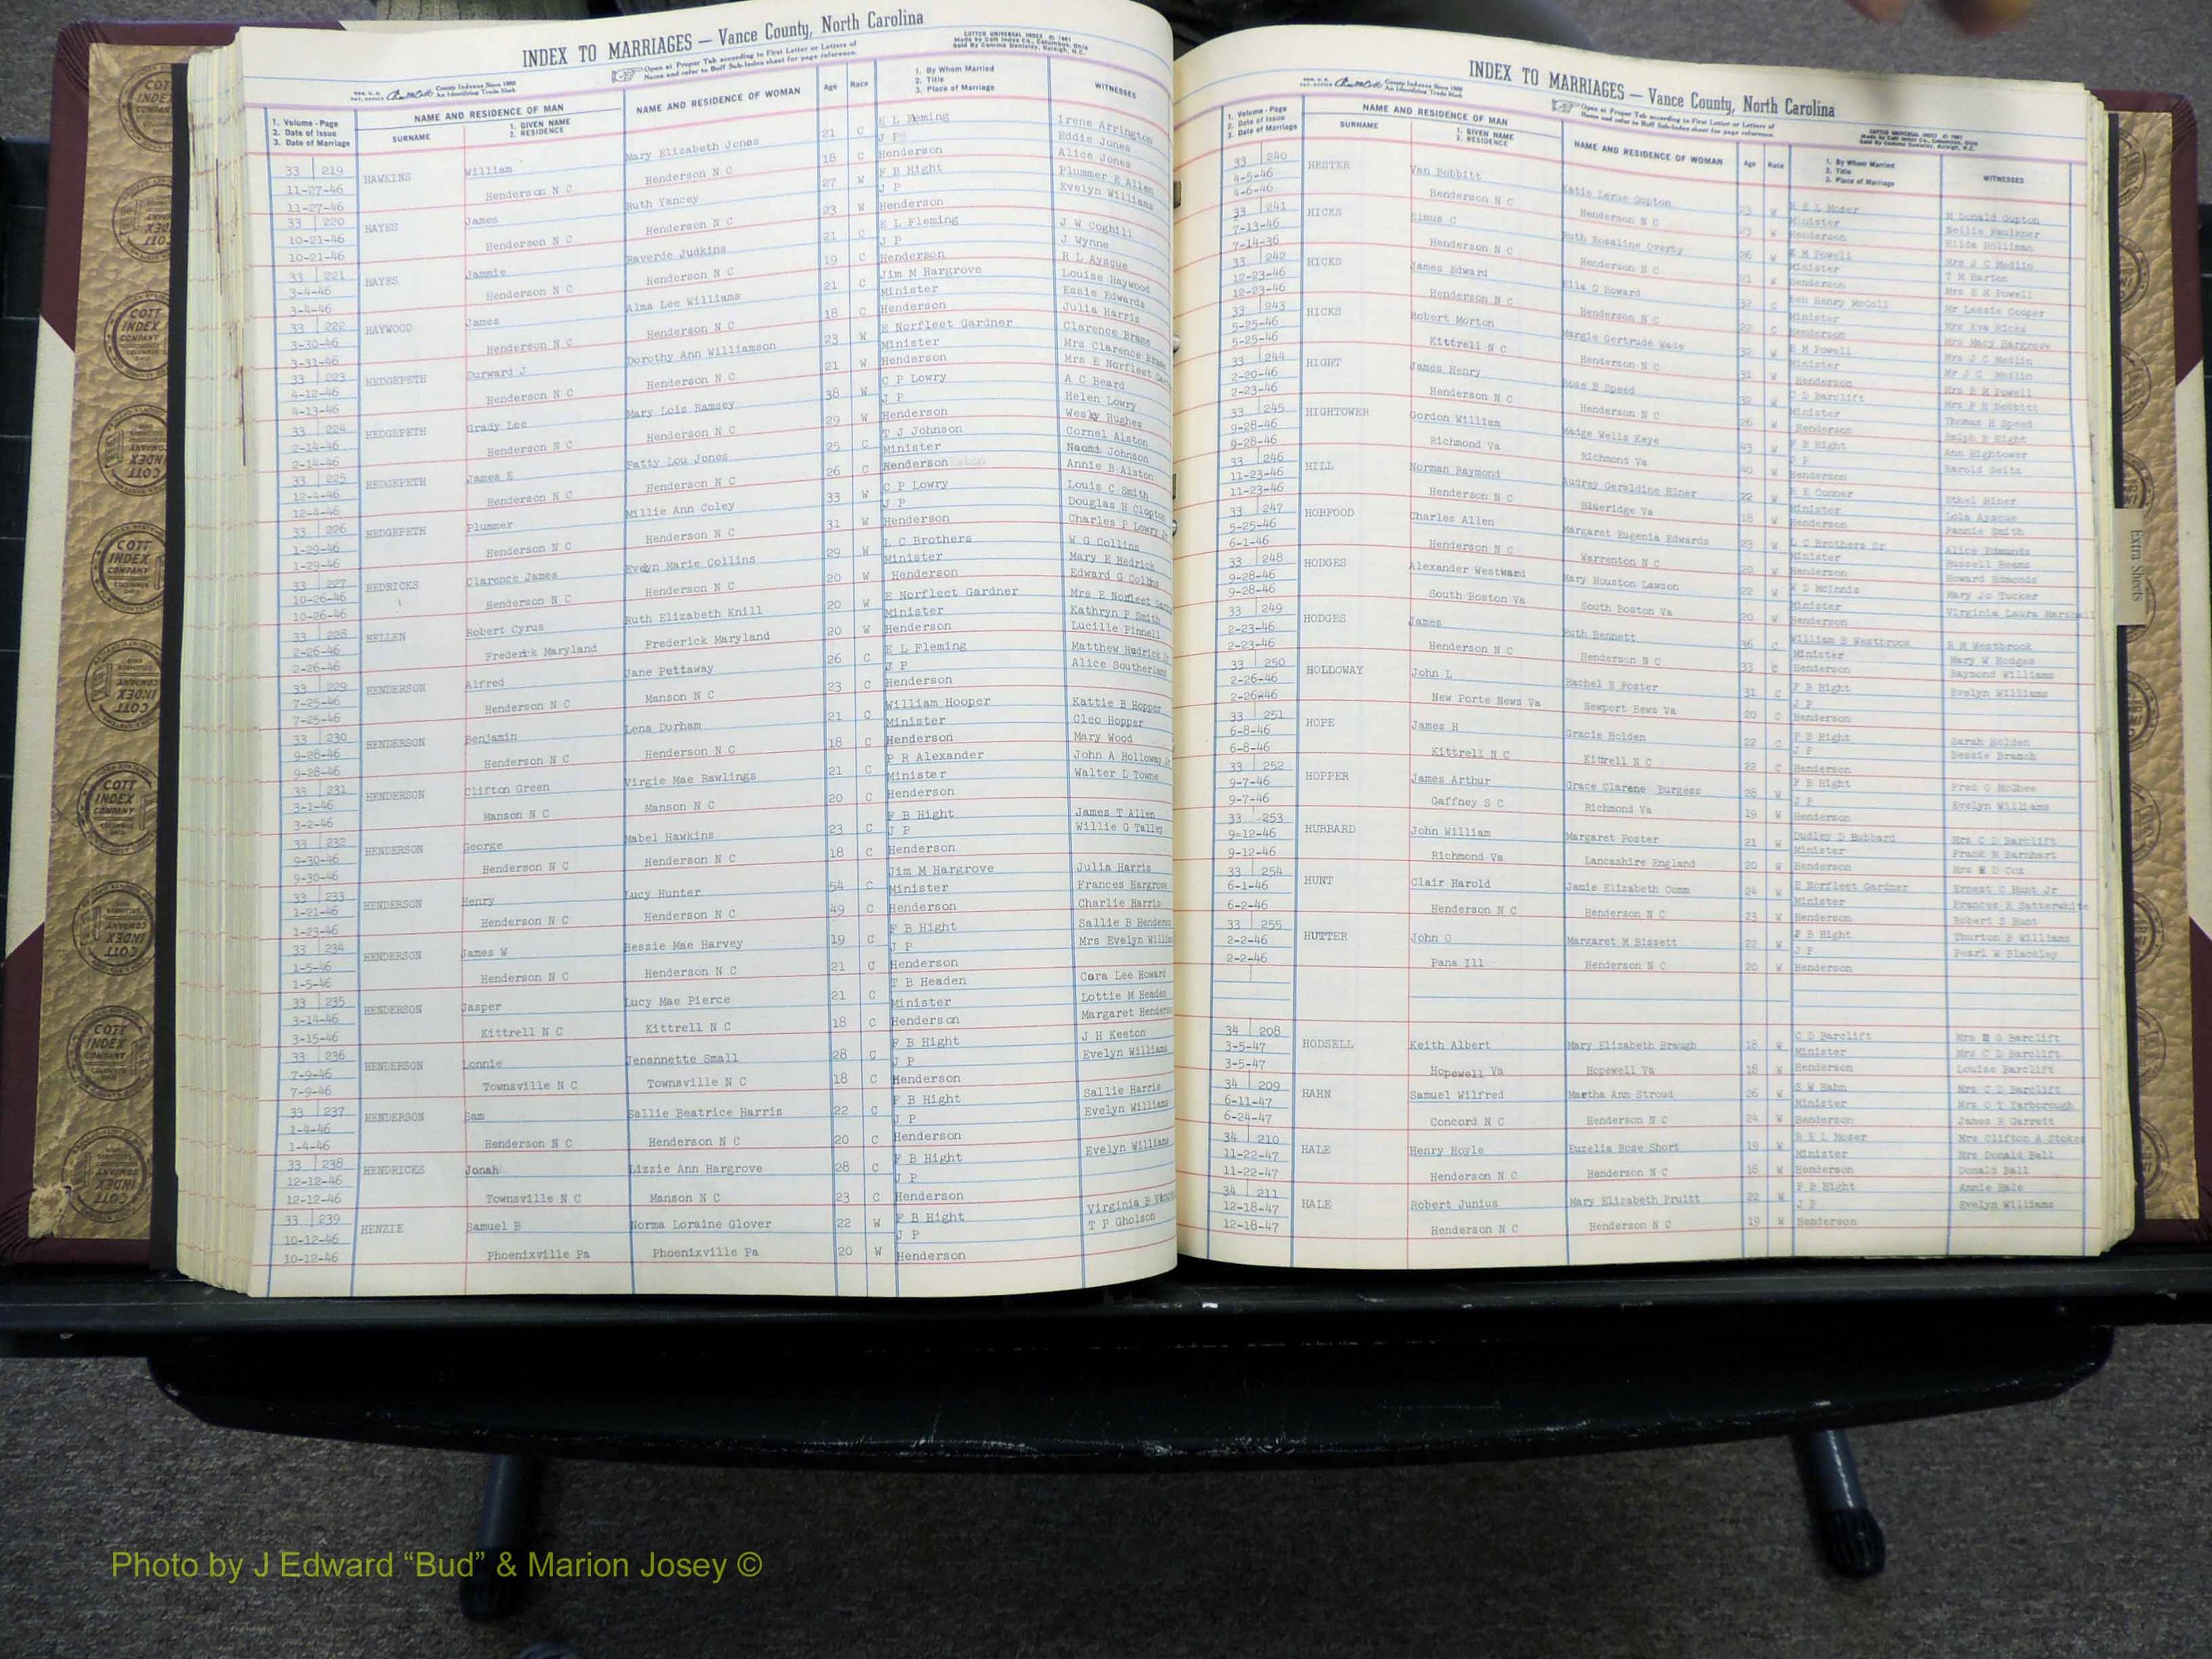 INDEX TO MARRIAGES — Vance County, North Carolina
Open at Proper Tab according to First Letter or Letters of
Name and refer to Buff Sub-Index sheet for page reference.
COTTCO UNIVERSAL INDEX © 1961
1. Volume - Page
2. Date of Issue
3. Date of Marriage
NAME AND RESIDENCE OF MAN
SURNAME
1. GIVEN NAME
2. RESIDENCE
NAME AND RESIDENCE OF WOMAN
Age Race
1. By Whom Married
2. Title
3. Place of Marriage
WITNESSES
33 219 HAWKINS William Mary Elizabeth Jones 21 C E L Fleming Irene Arrington
11-27-46 J P Eddie Jones
11-27-46 Henderson N C Henderson N C 18 C Henderson Alice Jones
33 220 HAYES James Ruth Yancey 27 W F B Hight Plummer E Allen
10-21-46 J P Evelyn Williams
10-21-46 Henderson N C Henderson N C 23 W Henderson
33 221 HAYES Jammie Raverie Judkins 21 C E L Fleming J W Coghill
3-4-46 J P J Wynne
3-4-46 Henderson N C Henderson N C 19 C Henderson R L Ayscue
33 222 HAYWOOD James Alma Lee Williams 21 C Jim M Hargrove Louise Haywood
3-30-46 Minister Essie Edwards
3-31-46 Henderson N C Henderson N C 18 C Henderson Julia Harris
33 223 HEDGEPETH Durward J Dorothy Ann Williamson 23 W E Norfleet Gardner Clarence Brame
4-12-46 Minister Mrs Clarence Brame
4-13-46 Henderson N C Henderson N C 21 W Henderson Mrs E Norfleet
33 224 HEDGEPETH Grady Lee Mary Lois Ramsey 38 W C P Lowry A C Beard
2-14-46 J P Helen Lowry
2-14-46 Henderson N C Henderson N C 29 W Henderson Wesley Hughes
33 225 HEDGEPETH James E Patty Lou Jones 25 C T J Johnson Cornel Alston
12-4-46 Minister Naomi Johnson
12-4-46 Henderson N C Henderson N C 26 C Henderson Annie B Alston
33 226 HEDGEPETH Plummer Millie Ann Coley 33 W C P Lowry Louis C Smith
1-29-46 J P Douglas H Clopton
1-29-46 Henderson N C Henderson N C 31 W Henderson Charles P Lowry Jr
33 227 HEDRICKS Clarence James Evelyn Marie Collins 29 W L C Brothers W G Collins
10-26-46 Minister Mary E Hedrick
10-26-46 Henderson N C Henderson N C 20 W Henderson Edward G Collins
33 228 HELLEN Robert Cyrus Ruth Elizabeth Knill 20 W E Norfleet Gardner Mrs E Norfleet
2-26-46 Minister Kathryn P Smith
2-26-46 Frederick Maryland Frederick Maryland 20 W Henderson Lucille Pinnell
33 229 HENDERSON Alfred Jane Pettaway 26 C E L Fleming Matthew Hedrick
7-25-46 J P Alice Southerland
7-25-46 Henderson N C Manson N C 23 C Henderson
33 230 HENDERSON Benjamin Lena Durham 21 C William Hooper Kattie B Hopper
9-28-46 Minister Cleo Hopper
9-28-46 Henderson N C Henderson N C 18 C Henderson Mary Wood
33 231 HENDERSON Clifton Green Virgie Mae Rawlings 21 C P R Alexander John A Holloway
3-1-46 Minister Walter L Towne
3-2-46 Manson N C Manson N C 20 C Henderson
33 232 HENDERSON George Mabel Hawkins 23 C F B Hight James T Allen
9-30-46 J P Willie G Talley
9-30-46 Henderson N C Henderson N C 18 C Henderson
33 233 HENDERSON Henry Lucy Hunter 54 C Jim M Hargrove Julia Harris
1-21-46 Minister Frances Hargrove
1-23-46 Henderson N C Henderson N C 49 C Henderson Charlie Harris
33 234 HENDERSON James W Bessie Mae Harvey 19 C F B Hight Sallie B Henderson
1-5-46 J P Mrs Evelyn Williams
1-5-46 Henderson N C Henderson N C 21 C Henderson
33 235 HENDERSON Jasper Lucy Mae Pierce 21 C T B Headen Cora Lee Howard
3-14-46 Minister Lottie M Headen
3-15-46 Kittrell N C Kittrell N C 18 C Henderson Margaret Henderson
33 236 HENDERSON Lonnie Jenannette Small 28 C F B Hight J H Keeton
7-9-46 J P Evelyn Williams
7-9-46 Townsville N C Townsville N C 18 C Henderson
33 237 HENDERSON Sam Sallie Beatrice Harris 22 C F B Hight Sallie Harris
1-4-46 J P Evelyn Williams
1-4-46 Henderson N C Henderson N C 20 C Henderson
33 238 HENDRICKS Jonah Lizzie Ann Hargrove 28 C F B Hight Evelyn Williams
12-12-46 J P
12-12-46 Townsville N C Manson N C 23 C Henderson
33 239 HENZIE Samuel B Norma Loraine Glover 22 W F B Hight Virginia B Vance
10-12-46 J P T P Gholson
10-12-46 Phoenixville Pa Phoenixville Pa 20 W Henderson
INDEX TO MARRIAGES — Vance County, North Carolina
Open at Proper Tab according to First Letter or Letters of
Name and refer to Buff Sub-Index sheet for page reference.
1. Volume - Page
2. Date of Issue
3. Date of Marriage
NAME AND RESIDENCE OF MAN
SURNAME
1. GIVEN NAME
2. RESIDENCE
NAME AND RESIDENCE OF WOMAN
Age Race
1. By Whom Married
2. Title
3. Place of Marriage
WITNESSES
33 240 HESTER Van Bobbitt Katie Lerue Gupton 23 W R E L Moser M Donald Gupton
4-5-46 Minister Nellie Faulkner
4-6-46 Henderson N C Henderson N C 23 W Henderson Hilda Holliman
33 241 HICKS Elmus C Ruth Rosaline Overby 26 W E M Powell Mrs J C Medlin
7-13-46 Minister T M Harton
7-14-36 Henderson N C Henderson N C 21 W Henderson Mrs E M Powell
33 242 HICKS James Edward Ella D Howard 32 C Ben Henry McColl Mr Lessie Cooper
12-23-46 Minister Mrs Eva Ricks
12-23-46 Henderson N C Henderson N C 22 C Henderson Mrs Macy Hargrove
33 243 HICKS Robert Morton Margie Gertrude Wade 32 W E M Powell Mrs J C Medlin
5-25-46 Minister Mr J C Medlin
5-25-46 Kittrell N C Henderson N C 31 W Henderson Mrs E M Powell
33 244 HIGHT James Henry Rose B Speed 32 W C D Barclift Mrs P H Bobbitt
2-20-46 Minister Thomas H Speed
2-23-46 Henderson N C Henderson N C 26 W Henderson Ralph B Hight
33 245 HIGHTOWER Gordon William Madge Wells Keye 43 W F B Hight Ann Hightower
9-28-46 J P Harold Seitz
9-28-46 Richmond Va Richmond Va 40 W Henderson
33 246 HILL Norman Raymond Audrey Geraldine Hiner 22 W R E Conner Ethel Hiner
11-23-46 Minister Lola Ayscue
11-23-46 Henderson N C Blueridge Va 18 W Henderson Fannie Smith
33 247 HOBFOOD Charles Allen Margaret Eugenia Edwards 23 W L C Brothers Sr Alice Edmunds
5-25-46 Minister Russell Reams
6-1-46 Henderson N C Warrenton N C 20 W Henderson Howard Edmonds
33 248 HODGES Alexander Westward Mary Houston Lawson 22 W W D McInnis Mary Jo Tucker
9-28-46 Minister Virginia Laura Marshall
9-28-46 South Boston Va South Boston Va 20 W Henderson
33 249 HODGES James Ruth Bennett 36 C William B Westbrook R M Westbrook
2-23-46 Minister Mary W Hodges
2-23-46 Henderson N C Henderson N C 33 C Henderson Raymond Williams
33 250 HOLLOWAY John L Rachel E Foster 31 C F B Hight Evelyn Williams
2-26-46 J P
2-26-46 New Porte News Va Newport Bews Va 20 C Henderson
33 251 HOPE James H Gracie Holden 22 C F B Hight Sarah Holden
6-8-46 J P Bessie Branch
6-8-46 Kittrell N C Kittrell N C 22 C Henderson
33 252 HOPPER James Arthur Grace Clarene Burgess 28 W F B Hight Fred O McGhee
9-7-46 J P Evelyn Williams
9-7-46 Gaffney S C Richmond Va 19 W Henderson
33 253 HUBBARD John William Margaret Foster 21 W Dudley D Hubbard Mrs C D Barclift
9-12-46 Minister Frank M Barnhart
9-12-46 Richmond Va Lancashire England 20 W Henderson Mrs M D Cox
33 254 HUNT Clair Harold Jamie Elizabeth Comm 24 W E Norfleet Gardner Ernest C Hunt Jr
6-1-46 Minister Frances R Satterwhite
6-2-46 Henderson N C Henderson N C 23 W Henderson Robert S Hunt
33 255 HUTTER John O Margaret M Bissett 22 W F B Hight Thurton B Williams
2-2-46 J P Pearl W Blackley
2-2-46 Pana Ill Henderson N C 20 W Henderson
34 208 HODSELL Keith Albert Mary Elizabeth Braugh 18 W C D Barclift Mrs G Barclift
3-5-47 Minister Mrs C D Barclift
3-5-47 Hopewell Va Hopewell Va 18 W Henderson Louise Barclift
34 209 HAHN Samuel Wilfred Martha Ann Stroud 26 W S W Hahn Mrs C D Barclift
6-11-47 Minister Mrs O Y Yarborough
6-24-47 Concord N C Henderson N C 24 W Henderson James R Garrett
34 210 HALE Henry Hoyle Euzelia Rose Short 19 W R E L Moser Mrs Clifton A Stokes
11-22-47 Minister Mrs Donald Ball
11-22-47 Henderson N C Henderson N C 18 W Henderson Donald Ball
34 211 HALE Robert Junius Mary Elizabeth Pruitt 22 W F B Hight Annie Hale
12-18-47 J P Evelyn Williams
12-18-47 Henderson N C Henderson N C 19 W Henderson
Extra Sheets
COTT
INDEX
COMPANY
Photo by J Edward “Bud” & Marion Josey ©